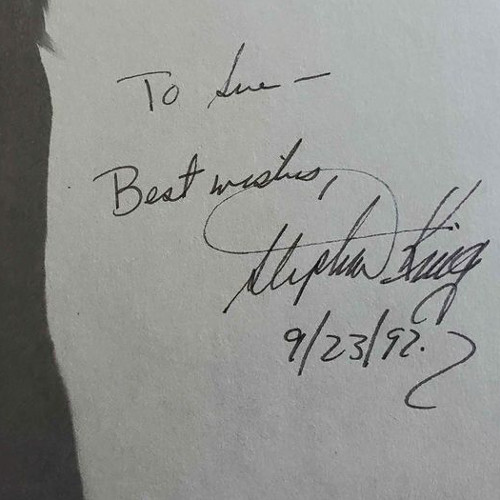 To Sue —
Best wishes,
Stephen King
9/23/92.